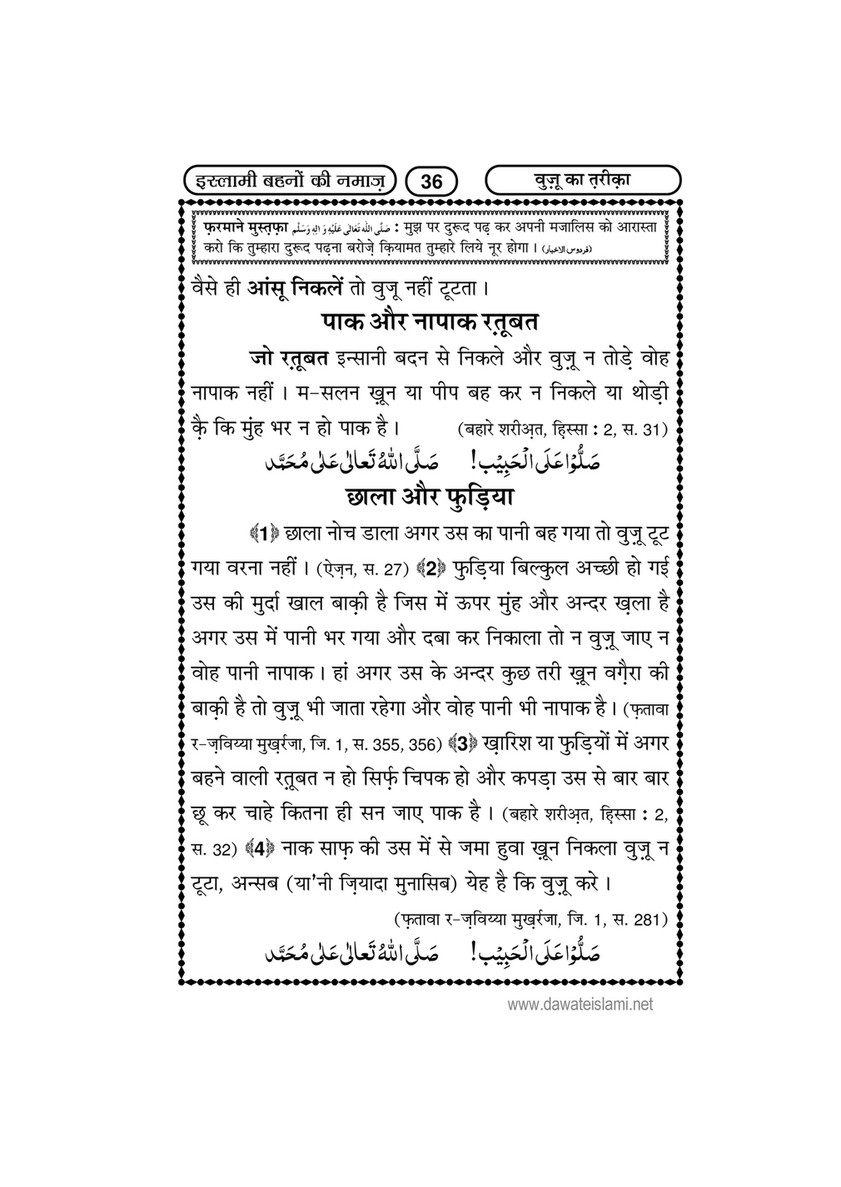 इस्लामी बहनों की नमाज़ 36 वुज़ू का त़रीक़ा
फ़रमाने मुस्त़फ़ा صَلَّى اللهُ تَعَالٰى عَلَيْهِ وَاٰلِهٖ وَسَلَّم : मुझ पर दुरूद पढ़ कर अपनी मजालिस को आरास्ता
करो कि तुम्हारा दुरूद पढ़ना बरोज़े क़ियामत तुम्हारे लिये नूर होगा । (فردوس الاخبار)
वैसे ही आंसू निकलें तो वुज़ू नहीं टूटता ।
पाक और नापाक रत़ूबत
जो रत़ूबत इन्सानी बदन से निकले और वुज़ू न तोड़े वोह
नापाक नहीं । म-सलन ख़ून या पीप बह कर न निकले या थोड़ी
क़ै कि मुंह भर न हो पाक है । (बहारे शरीअ़त, हि़स्सा : 2, स. 31)
صَلُّوْا عَلَى الْحَبِيْب! صَلَّى اللهُ تَعَالٰى عَلٰى مُحَمَّد
छाला और फुड़िया
﴾1﴿ छाला नोच डाला अगर उस का पानी बह गया तो वुज़ू टूट
गया वरना नहीं । (ऐज़न, स. 27) ﴾2﴿ फुड़िया बिल्कुल अच्छी हो गई
उस की मुर्दा खाल बाक़ी है जिस में ऊपर मुंह और अन्दर ख़ला है
अगर उस में पानी भर गया और दबा कर निकाला तो न वुज़ू जाए न
वोह पानी नापाक । हां अगर उस के अन्दर कुछ तरी ख़ून वग़ैरा की
बाक़ी है तो वुज़ू भी जाता रहेगा और वोह पानी भी नापाक है । (फ़तावा
र-ज़विय्या मुख़र्रजा, जि. 1, स. 355, 356) ﴾3﴿ ख़ारिश या फुड़ियों में अगर
बहने वाली रत़ूबत न हो सिर्फ़ चिपक हो और कपड़ा उस से बार बार
छू कर चाहे कितना ही सन जाए पाक है । (बहारे शरीअ़त, हि़स्सा : 2,
स. 32) ﴾4﴿ नाक साफ़ की उस में से जमा हुवा ख़ून निकला वुज़ू न
टूटा, अन्सब (या'नी ज़ियादा मुनासिब) येह है कि वुज़ू करे ।
(फ़तावा र-ज़विय्या मुख़र्रजा, जि. 1, स. 281)
صَلُّوْا عَلَى الْحَبِيْب! صَلَّى اللهُ تَعَالٰى عَلٰى مُحَمَّد
www.dawateislami.net